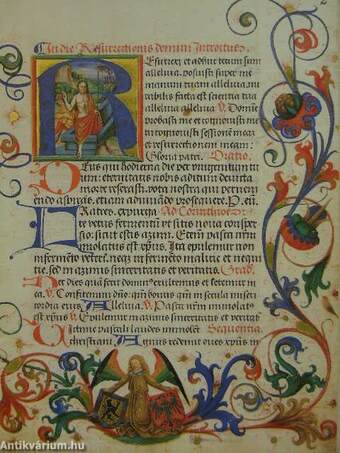 In die Resurrectionis domini Introitus
Resurrexi et adhuc tecum sum
alleluia. posuisti super me
manum tuam alleluia. mi
rabilis facta est scientia tua
alleluia alleluia V. Domine
probasti me et cognovisti me
tu cognovisti sessionem meam
et resurrectionem meam:
Gloria patri. Oratio.
Deus qui hodierna die per unigenitum tuum
eternitatis nobis aditum devicta
morte reserasti. vota nostra que preveni
endo aspiras, etiam adiuvando prosequere. P. eun.
Fratres. expurga Ad Corinthios
te vetus fermentum ut sitis nova consper
sio. sicut estis azimi. Etenim pascha nostrum
immolatus est xpus. Itaque epulemur non
in fermento veteri. neque in fermento malicie et nequi
tie, sed in azimis sinceritatis et veritatis. Grad.
Hec dies quam fecit dominus exultemus et letemur in
ea. V. Confitemini dno. quoniam bonus quoniam in secula miseri
cordia eius Alleluia. V. Pascha nostrum immolatus
est xpus V. Epulemur in azimis sinceritatis et veritatis
Victime paschali laudes immolent Sequentia
christiani Agnus redemit oves xpus in
Antikvárium.hu